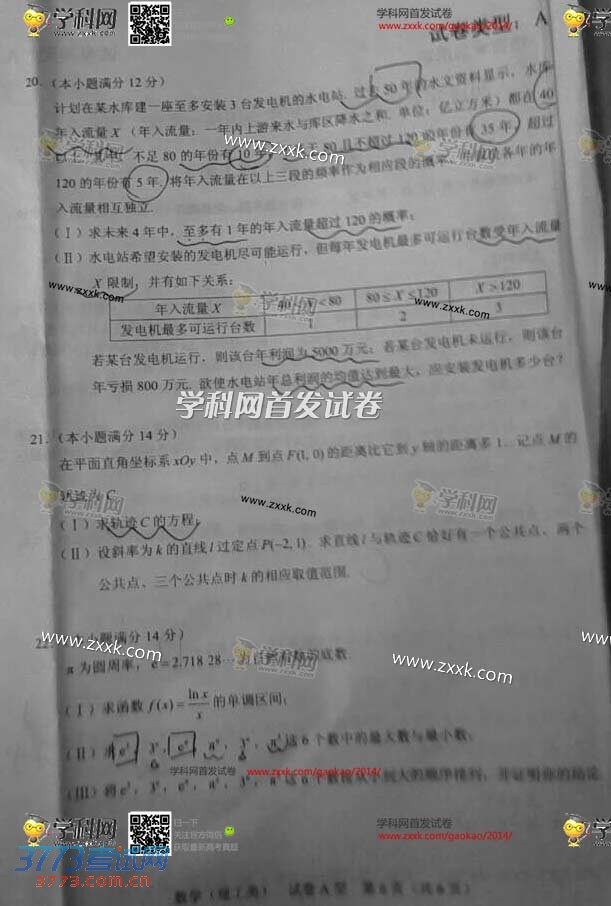 学科网
学科网首发试卷
www.zxxk.com/gaokao/2014/
学科网
试卷类型 A
20. (本小题满分 12 分)
计划在某水库建一座至多安装 3 台发电机的水电站. 过去 50 年的水文资料显示, 水库
年入流量 X (年入流量: 一年内上游来水与库区降水之和. 单位: 亿立方米) 都在 40
以上. 其中, 不足 80 的年份有 10 年, 不低于 80 且不超过 120 的年份有 35 年, 超过
www.zxxk.com
120 的年份有 5 年. 将年入流量在以上三段的频率作为相应段的概率, 各年的年
入流量相互独立.
(Ⅰ) 求未来 4 年中, 至多有 1 年的年入流量超过 120 的概率;
(Ⅱ) 水电站希望安装的发电机尽可能运行, 但每年发电机最多可运行台数受年入流量
X 限制, 并有如下关系:
www.zxxk.com
学科网
www.zxxk.com
年入流量 X 40<X<80 80≤X≤120 X>120
发电机最多可运行台数 1 2 3
若某台发电机运行, 则该台年利润为 5000 万元; 若某台发电机未运行, 则该台
年亏损 800 万元. 欲使水电站年总利润的均值达到最大, 应安装发电机多少台?
学科网首发试卷
21. (本小题满分 14 分)
在平面直角坐标系 xOy 中, 点 M 到点 F(1, 0) 的距离比它到 y 轴的距离多 1. 记点 M 的
轨迹为 C.
学科网
www.zxxk.com
学科网
(Ⅰ) 求轨迹 C 的方程;
(Ⅱ) 设斜率为 k 的直线 l 过定点 P(-2, 1). 求直线 l 与轨迹 C 恰好有一个公共点、两个
公共点、三个公共点时 k 的相应取值范围.
22. (本小题满分 14 分)
π 为圆周率, e = 2.718 28… 为自然对数的底数.
www.zxxk.com
学科网
www.zxxk.com
(Ⅰ) 求函数 f(x) = ln x / x 的单调区间;
(Ⅱ) 求 这 6 个数中的最大数与最小数;
学科网首发试卷 www.zxxk.com/gaokao/2014/
(Ⅲ) 将 这 6 个数按从小到大的顺序排列, 并证明你的结论.
学科网
扫一下
关注官方微信
获取最新高考真题
学科网首发试卷
www.zxxk.com/gaokao/2014/
学科网
3773考试网
3773.com.cn
数学(理工类) 试卷A型 第 6 页 (共 6 页)